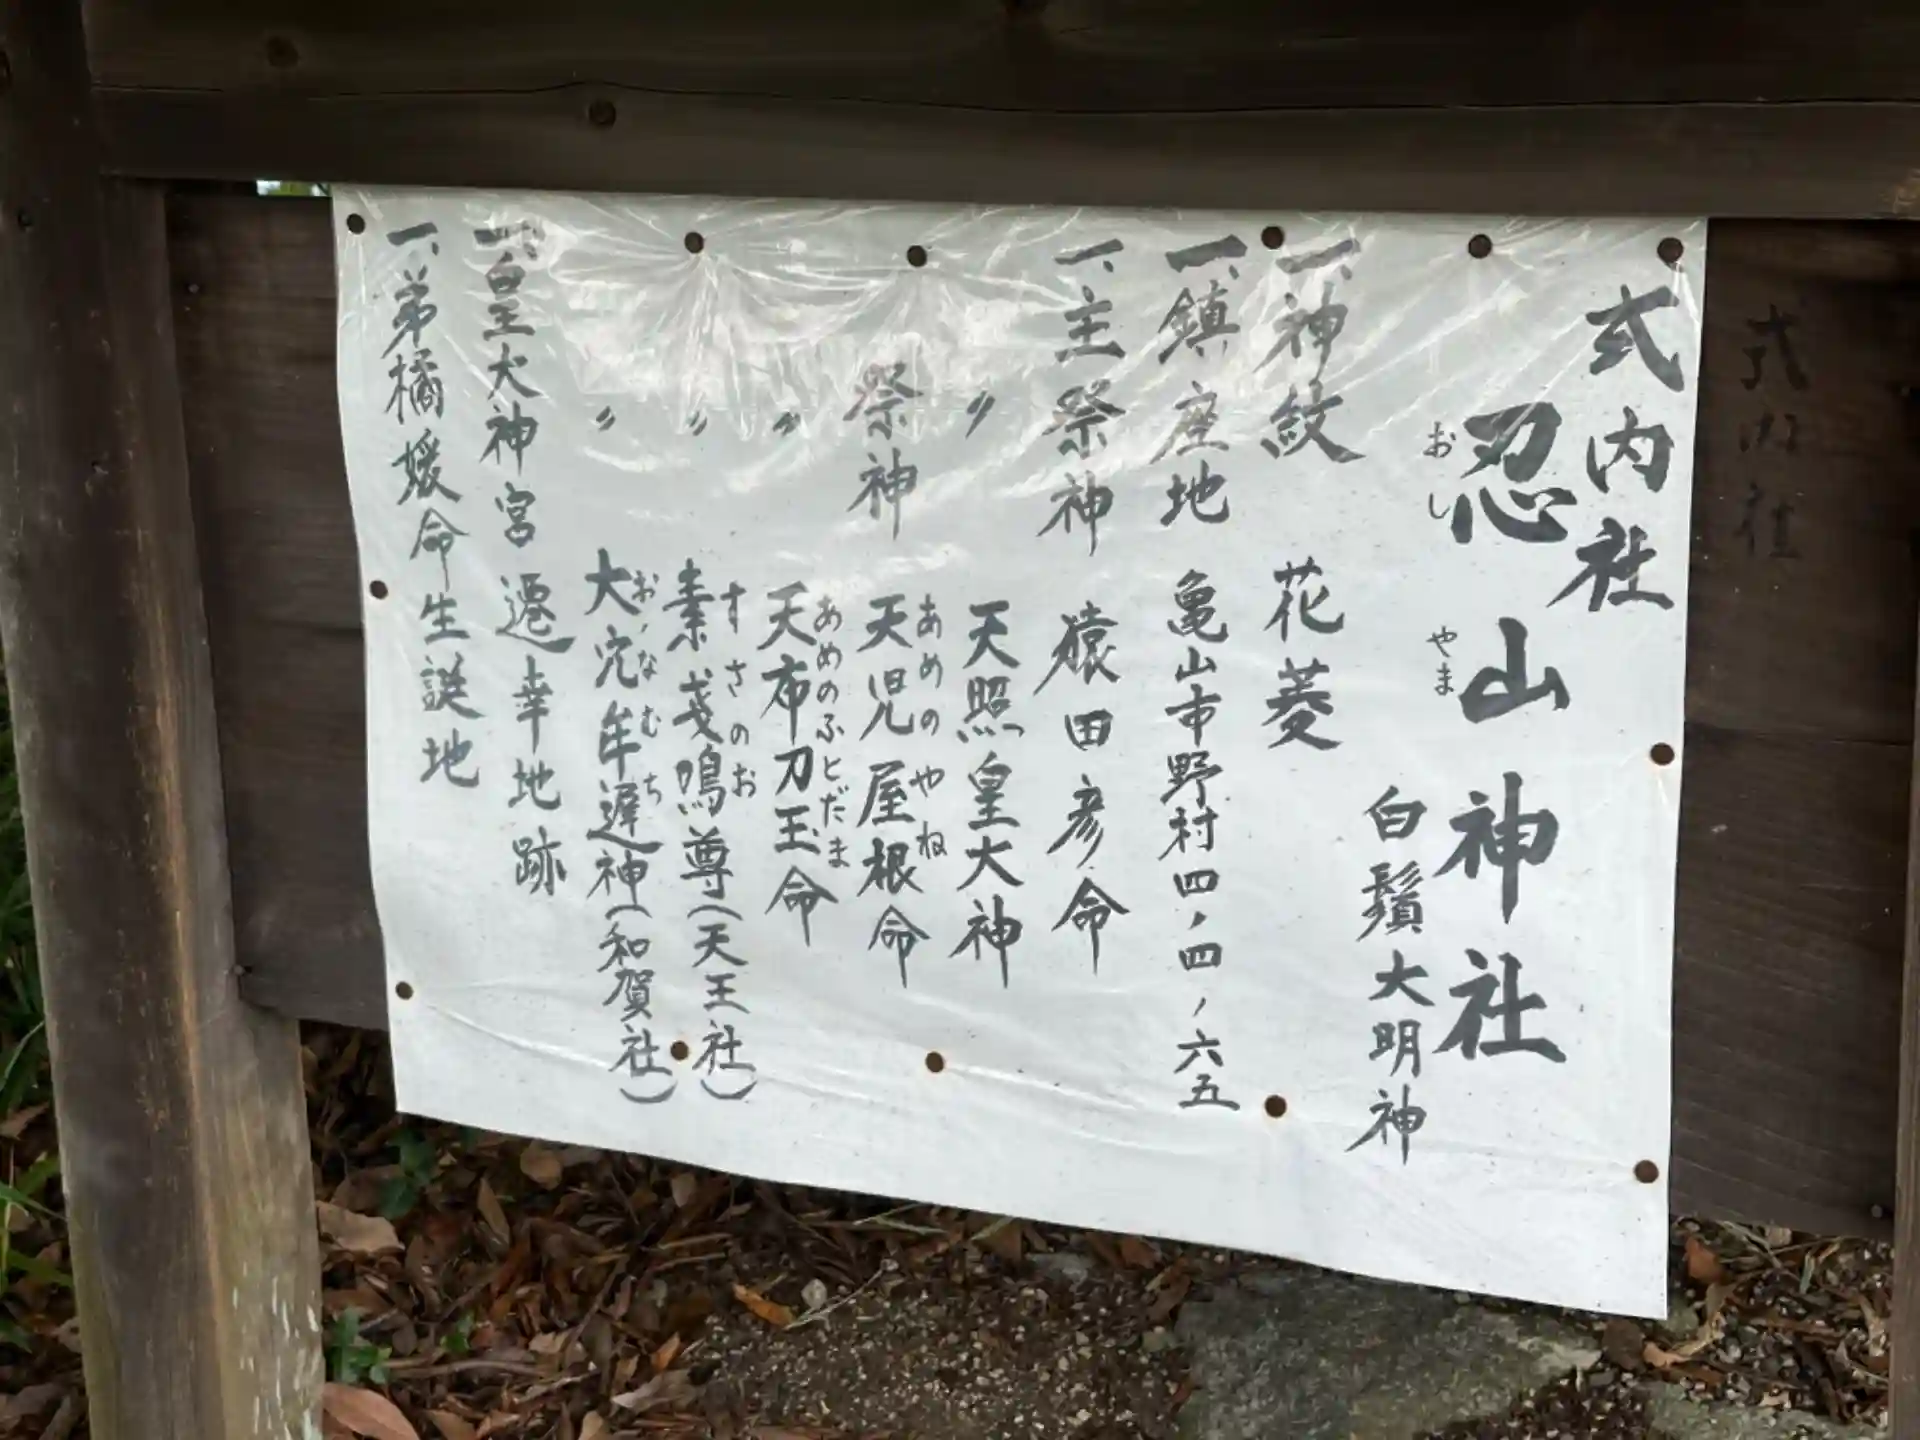 式内社
忍山神社
おし やま
白鬚大明神
一、神紋 花菱
一、鎮座地 亀山市野村四ノ四ノ六五
一、主祭神 猿田彦命
〃 天照皇大神
祭神 天児屋根命
あめのやね
〃 天布刀玉命
あめのふとだま
〃 素戔鳴尊(天王社)
すさのお
〃 大穴牟遅神(和賀社)
おゝなむち
一、皇大神宮 遷幸地跡
一、弟橘媛命生誕地
式内社